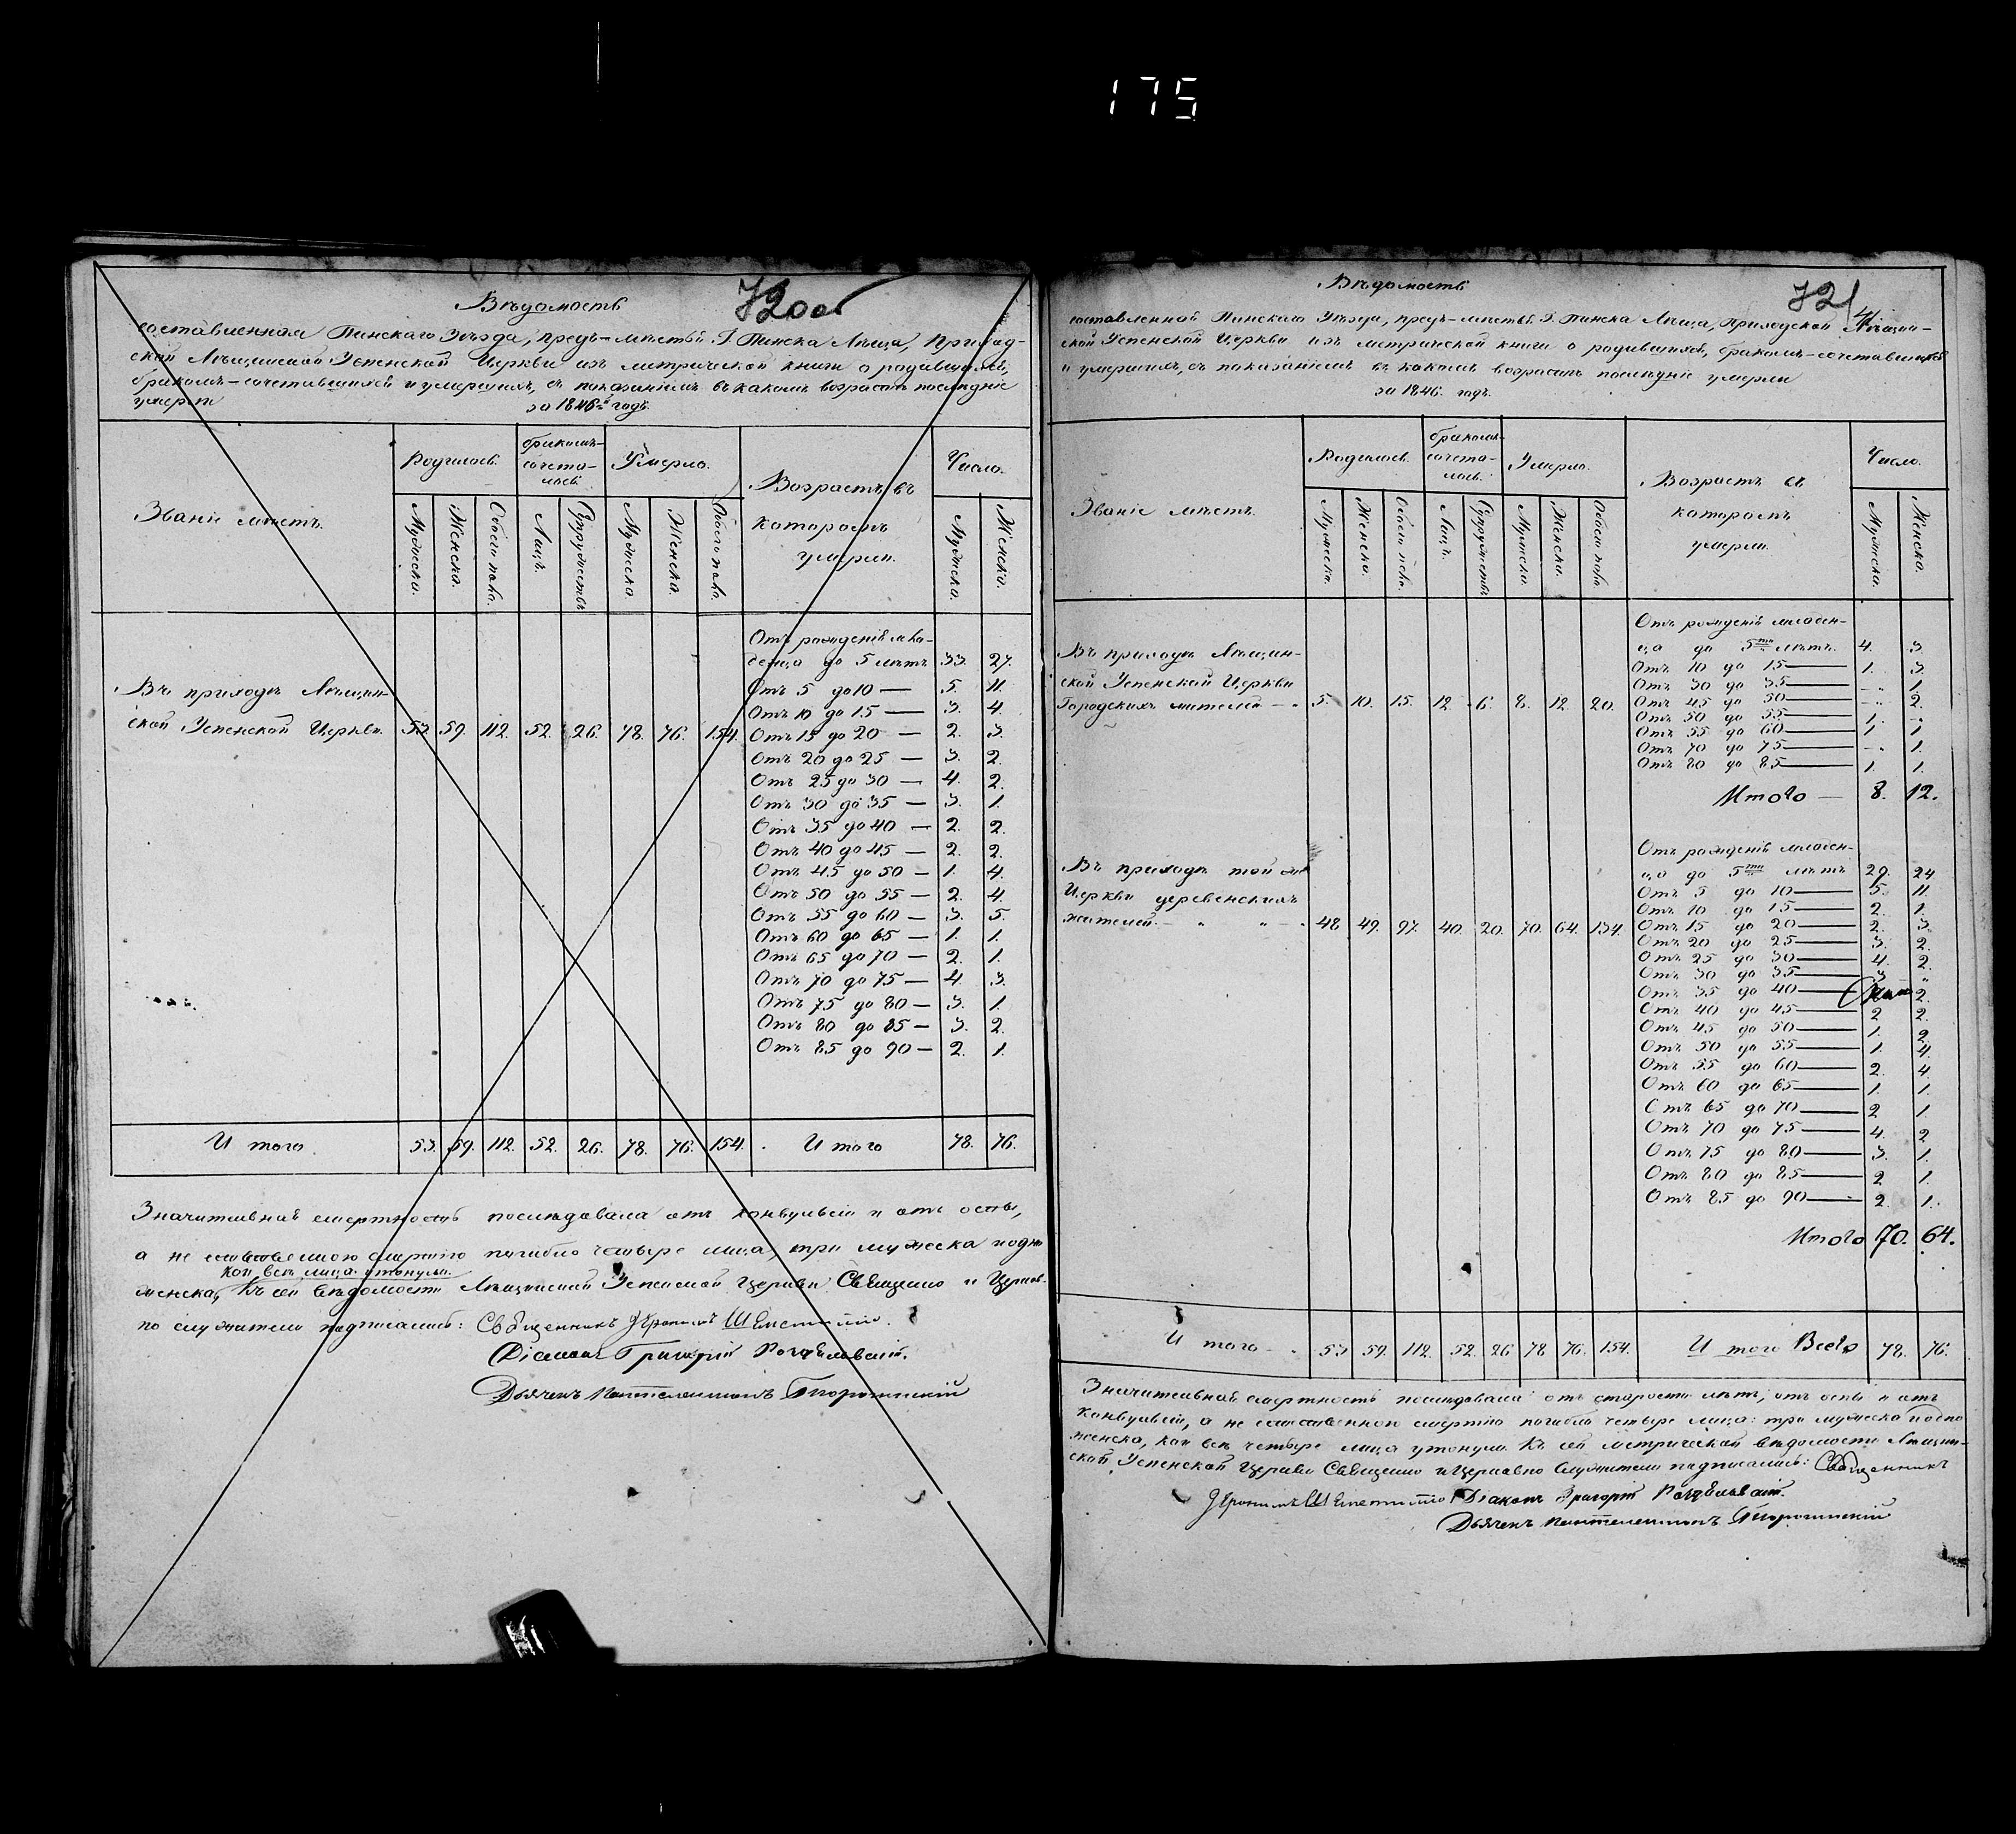 175
720об
Вѣдомость
составленная Пинскаго Уѣзда, предъ-мѣстья Г. Пинска Лѣща, Приход-
ской Лѣщинской Успенской Церкви изъ метрической книги о родившихся,
бракомъ-сочетавшихся и умершихъ, съ показаніемъ въ какомъ возрастѣ послѣдніе
умерли за 1846й годъ.
Званіе мѣстъ. Родилось. бракомъ-сочета-лось. Умерло. Возрастъ въ которомъ умерли. Число.
Мужеска. Женска. Обоего пола. Лицъ. Супружествъ Мужеска. Женска. Обоего пола. Мужеска. Женска.
Въ приходѣ Лѣщин-
ской Успенской Церкви. 53. 59. 112. 52. 26. 78. 76. 154.
Отъ рожденія мла-
денца до 5 лѣтъ 33. 27.
Отъ 5 до 10 — 5. 11.
Отъ 10 до 15 — 3. 4.
Отъ 15 до 20 — 2. 3.
Отъ 20 до 25 — 3. 2.
Отъ 25 до 30 — 4. 2.
Отъ 30 до 35 — 3. 1.
Отъ 35 до 40 — 2. 2.
Отъ 40 до 45 — 2. 2.
Отъ 45 до 50 — 1. 4.
Отъ 50 до 55 — 2. 4.
Отъ 55 до 60 — 3. 5.
Отъ 60 до 65 — 1. 1.
Отъ 65 до 70 — 2. 1.
Отъ 70 до 75 — 4. 3.
Отъ 75 до 80 — 3. 1.
Отъ 80 до 85 — 3. 2.
Отъ 85 до 90 — 2. 1.
Итого. 53. 59. 112. 52. 26. 78. 76. 154. Итого 78. 76.
Значительная смертность послѣдовала отъ конвульсіи и отъ оспы,
а не естественною смертію погибло четыре лица, три мужеска и одно
кои всѣ лица утонули.
женска, Къ сей вѣдомости Лѣщинской Успенской Церкви Священно и Церков-
но служители подписались: Священникъ Іеронимъ
Діаконъ Григорій
Дьячекъ Пантелеимонъ
721
Вѣдомость
составленной Пинскаго Уѣзда, предъ-мѣстья Г. Пинска Лѣща, Приходской Лѣщин-
ской Успенской Церкви изъ метрической книги о родившихся, бракомъ-сочетавшихся
и умершихъ, съ показаніемъ въ какомъ возрастѣ послѣдніе умерли
за 1846. годъ.
Званіе мѣстъ. Родилось. бракомъ-сочета-лось. Умерло. Возрастъ въ которомъ умерли. Число.
Мужеска. Женска. Обоего пола. Лицъ. Супружествъ Мужеска. Женска. Обоего пола Мужеска. Женска.
Въ приходѣ Лѣщин-
ской Успенской Церкви
Городскихъ жителей — 5. 10. 15. 12. 6. 8. 12. 20.
Отъ рожденія младен-
ца до 5ти лѣтъ. 4. 3.
Отъ 10 до 15 — 1. 3.
Отъ 30 до 35 — „ 1.
Отъ 45 до 50 — „ 2.
Отъ 50 до 55 — 1. „
Отъ 55 до 60 — 1. 1
Отъ 70 до 75 — „ 1.
Отъ 80 до 85 — 1. 1.
Итого — 8. 12.
Въ приходѣ той же
Церкви деревенскихъ
жителей. — „ „ 48 49. 97. 40. 20. 70. 64. 134.
Отъ рожденія младен-
ца до 5ти лѣтъ 29. 24
Отъ 5 до 10 — 5. 11.
Отъ 10 до 15 — 2. 1.
Отъ 15 до 20 — 2. 3.
Отъ 20 до 25 — 3. 2.
Отъ 25 до 30 — 4. 2.
Отъ 30 до 35 — 3 „
Отъ 35 до 40 — 2.
Отъ 40 до 45 — 2 2.
Отъ 45 до 50 — 1. 2
Отъ 50 до 55 — 1. 4.
Отъ 55 до 60 — 2. 4.
Отъ 60 до 65 — 1. 1.
Отъ 65 до 70 — 2 1.
Отъ 70 до 75 — 4. 2
Отъ 75 до 80 — 3. 1.
Отъ 80 до 85 — 2 1.
Отъ 85 до 90 — 2. 1.
Итого 70. 64.
Итого — 53 59. 112. 52. 26 78 76. 154. Итого Всего 78. 76.
Значительная смертность послѣдовала отъ старости лѣтъ, отъ оспы и отъ
Конвульсіи, а не естественной смертію погибло четыре лица: три мужеска и одно
женско, кои всѣ четыре лица утонули. Къ сей метрической вѣдомости Лѣщин-
ской Успенской Церкви Священно и Церковно Служители подписались: Священникъ
Іеронимъ Діаконъ Григорій
Дьячекъ Пантелеимонъ